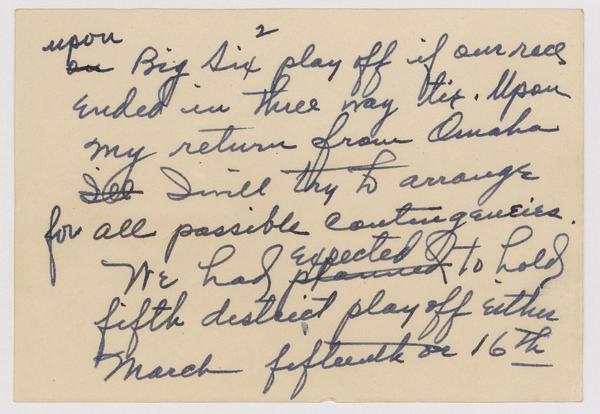 2
upon
on Big Six play off if our race
ended in three way tie. Upon
my return from Omaha
I'll I will try to arrange
for all possible contingencies.
expected
We had planned to hold
fifth district playoff either
March fifteenth or 16th